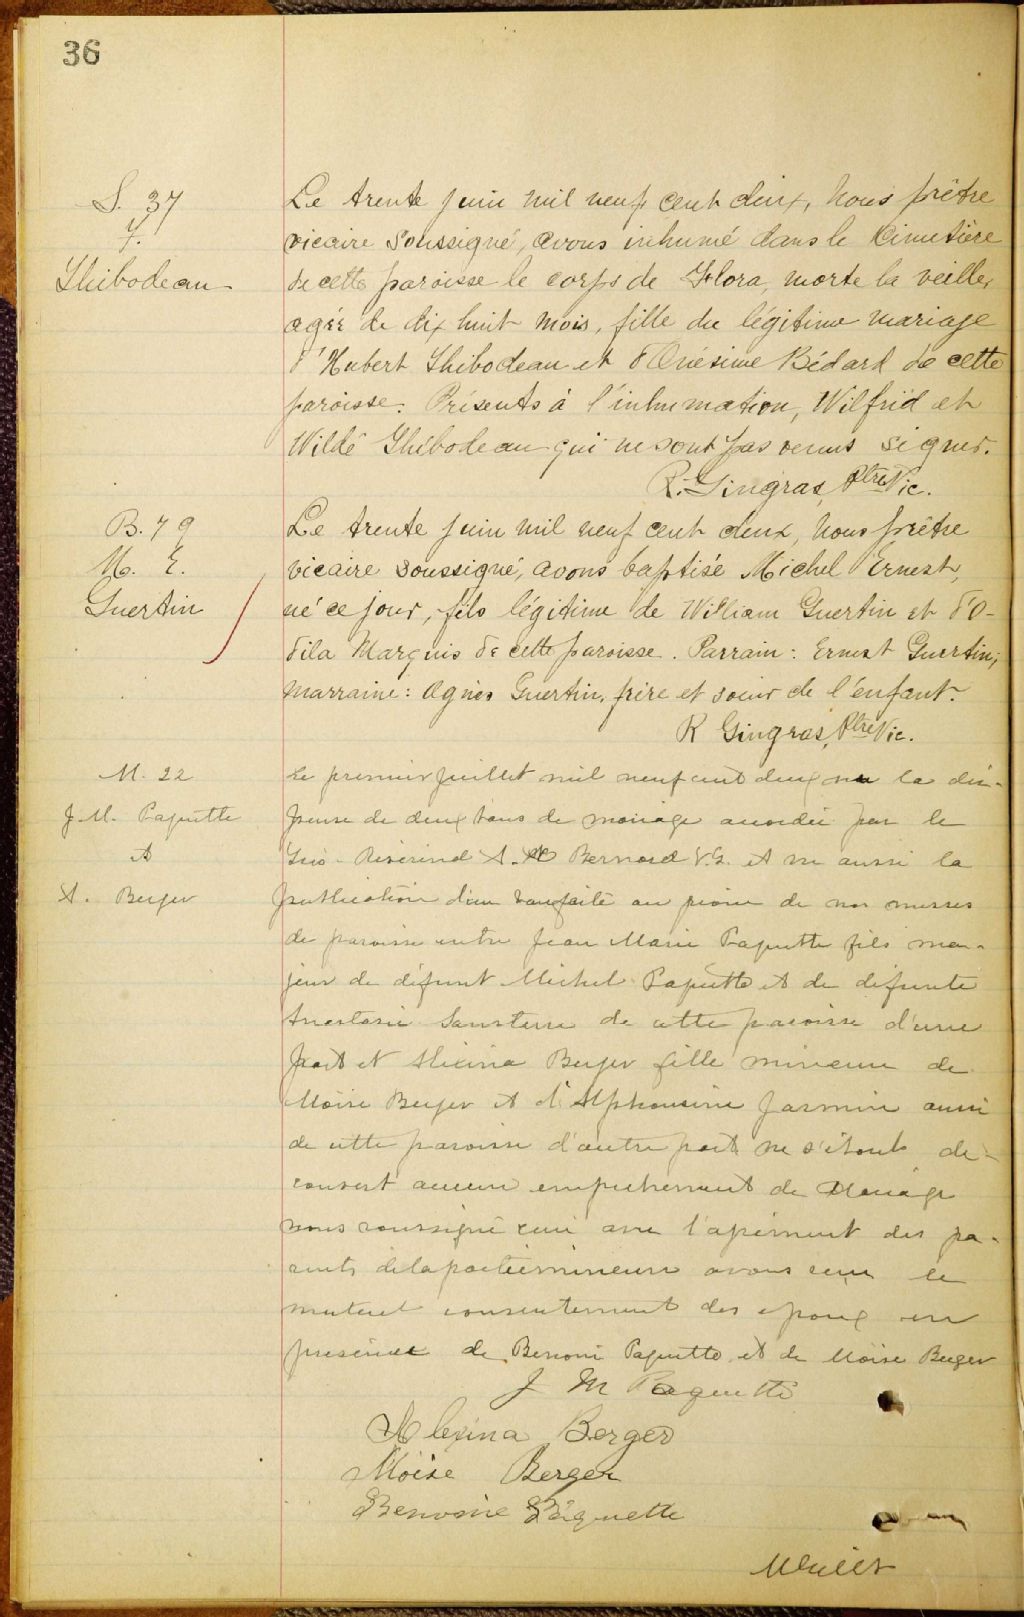 36
S. 37
F.
Thibodeau
Le trente juin mil neuf cent deux, nous prêtre
vicaire soussigné, avons inhumé dans le cimetière
de cette paroisse le corps de Flora, morte la veille,
agée de dix huit mois, fille du légitime mariage
d'Hubert Thibodeau et d'Onésime Bédard de cette
paroisse. Présents à l'inhumation, Wilfrid et
Wildé Thibodeau qui ne sont pas venus signer.
R. Gingras, Ptre Vic.
B. 79
M. E.
Guertin
Le trente juin mil neuf cent deux, nous prêtre
vicaire soussigné, avons baptisé Michel Ernest,
né ce jour, fils légitime de William Guertin et d'O-
dila Marquis de cette paroisse. Parrain: Ernest Guertin;
marraine: Agnès Guertin, frère et soeur de l'enfant.
R Gingras, Ptre Vic.
M. 22
J. M. Paquette
et
A. Berger
Le premier juillet mil neuf cent deux vu la dis-
pense de deux bans de mariage accordée par le
Très Révérend A. Bernard V.G. et vu aussi la
publication d'un ban faite au prône de nos messes
de paroisse entre Jean Marie Paquette fils ma-
jeur de défunt Michel Paquette et de défunte
Anastasie Sansterre de cette paroisse d'une
part et Alexina Berger fille mineure de
Moïse Berger et d'Alphonsine Jasmin aussi
de cette paroisse d'autre part ne s'étant dé-
couvert aucun empêchement de mariage
nous soussigné curé avec l'agrément des pa-
rents de la partie mineure avons reçu le
mutuel consentement des époux en
présence de Benoni Paquette et de Moïse Berger
J M Paquette
Alexina Berger
Moïse Berger
Benonie Paquette